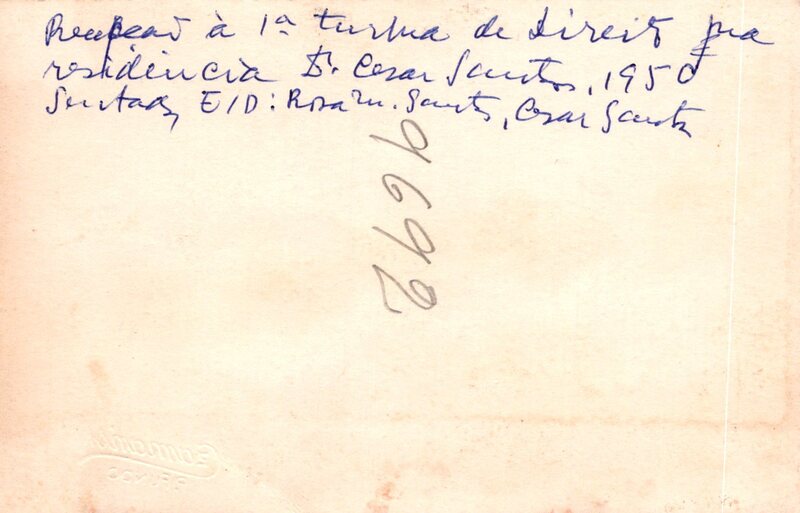 Recepção à 1ª turma de Direito na
residência Dr. Cesar Santos, 1950
Sentados, E/D: Rosa M. Santos, Cesar Santos
9692